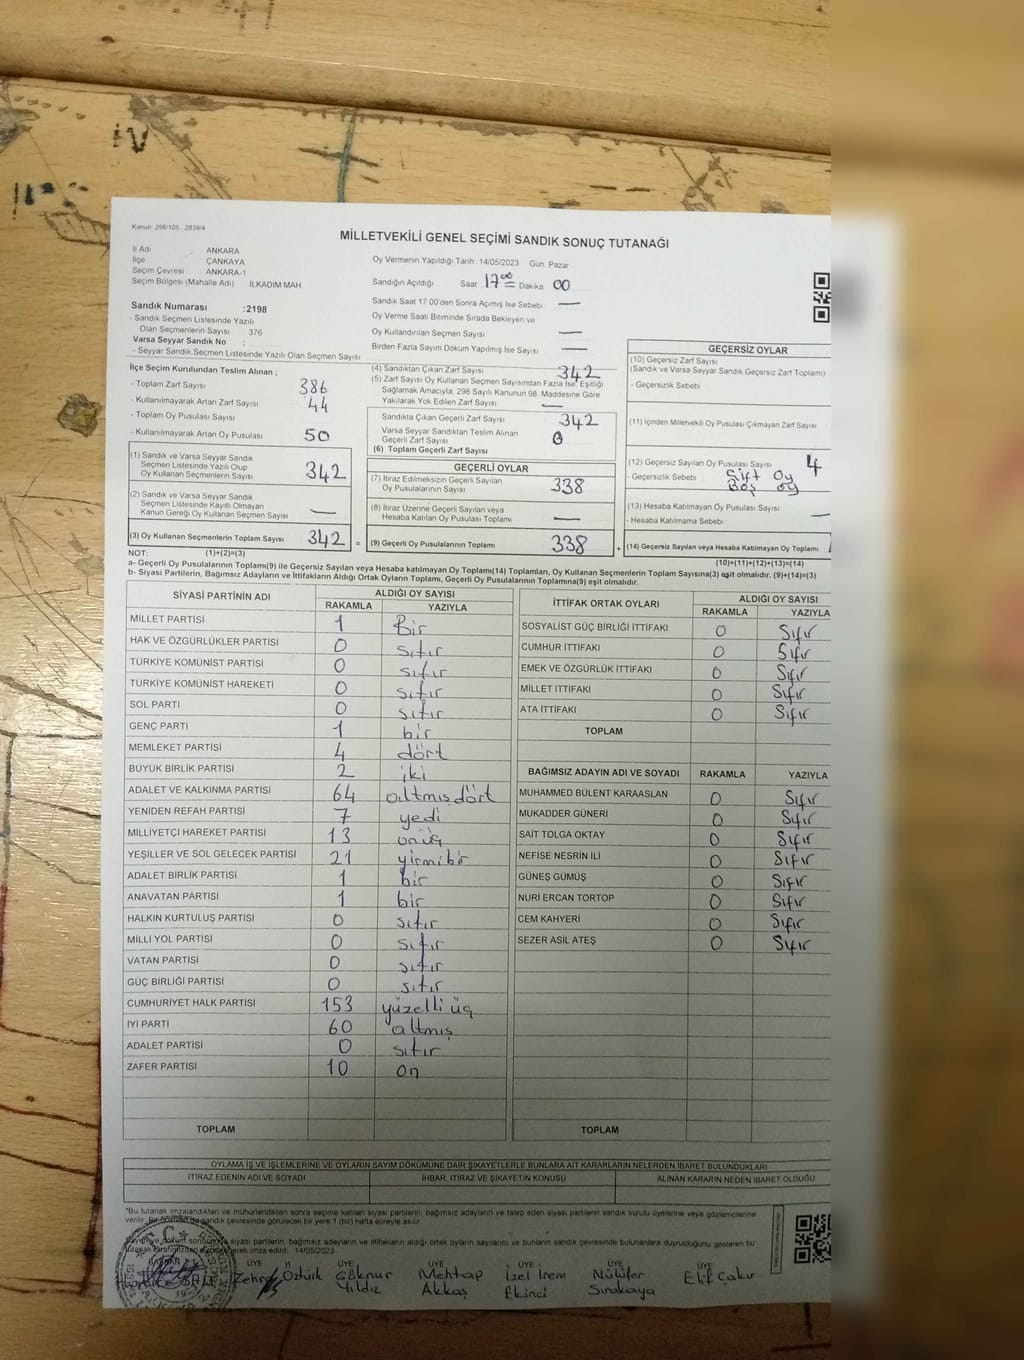 Kanun: 298/105 2839/4
MİLLETVEKİLİ GENEL SEÇİMİ SANDIK SONUÇ TUTANAĞI
İl Adı ANKARA
İlçe ÇANKAYA
Seçim Çevresi ANKARA-1
Seçim Bölgesi (Mahalle Adı) İLKADIM MAH
Sandık Numarası :2198
- Sandık Seçmen Listesinde Yazılı
Olan Seçmenlerin Sayısı : 376
Varsa Seyyar Sandık No :
- Seyyar Sandık Seçmen Listesinde Yazılı Olan Seçmen Sayısı
Oy Vermenin Yapıldığı Tarih 14/05/2023 Gün: Pazar
Sandığın Açıldığı Saat 17.00 Dakika 00
Sandık Saat 17.00'den Sonra Açılmış İse Sebebi —
Oy Verme Saati Bitiminde Sırada Bekleyen ve
Oy Kullandırılan Seçmen Sayısı —
Birden Fazla Sayım Döküm Yapılmış İse Sayısı —
İlçe Seçim Kurulundan Teslim Alınan :
- Toplam Zarf Sayısı 386
- Kullanılmayarak Artan Zarf Sayısı 44
- Toplam Oy Pusulası Sayısı
- Kullanılmayarak Artan Oy Pusulası 50
(1) Sandık ve Varsa Seyyar Sandık
Seçmen Listesinde Yazılı Olup
Oy Kullanan Seçmenlerin Sayısı 342
(2) Sandık ve Varsa Seyyar Sandık
Seçmen Listesinde Kayıtlı Olmayan
Kanun Gereği Oy Kullanan Seçmen Sayısı —
(3) Oy Kullanan Seçmenlerin Toplam Sayısı 342
(4) Sandıktan Çıkan Zarf Sayısı 342
(5) Zarf Sayısı Oy Kullanan Seçmen Sayısından Fazla İse, Eşitliği
Sağlamak Amacıyla, 298 Sayılı Kanunun 98. Maddesine Göre
Yakılarak Yok Edilen Zarf Sayısı —
Sandıkta Çıkan Geçerli Zarf Sayısı 342
Varsa Seyyar Sandıktan Teslim Alınan
Geçerli Zarf Sayısı 0
(6) Toplam Geçerli Zarf Sayısı
GEÇERLİ OYLAR
(7) İtiraz Edilmeksizin Geçerli Sayılan
Oy Pusulalarının Sayısı 338
(8) İtiraz Üzerine Geçerli Sayılan veya
Hesaba Katılan Oy Pusulası Toplamı —
= (9) Geçerli Oy Pusulalarının Toplamı 338 +
GEÇERSİZ OYLAR
(10) Geçersiz Zarf Sayısı
(Sandık ve Varsa Seyyar Sandık Geçersiz Zarf Toplamı)
- Geçersizlik Sebebi
(11) İçinden Milletvekili Oy Pusulası Çıkmayan Zarf Sayısı
(12) Geçersiz Sayılan Oy Pusulası Sayısı 4
- Geçersizlik Sebebi Çift Oy
Boş oy
(13) Hesaba Katılmayan Oy Pusulası Sayısı —
- Hesaba Katılmama Sebebi
(14) Geçersiz Sayılan veya Hesaba Katılmayan Oy Toplamı
NOT: (1)+(2)=(3) (10)+(11)+(12)+(13)=(14)
a- Geçerli Oy Pusulasının Toplamı(9) ile Geçersiz Sayılan veya Hesaba katılmayan Oy Toplamı(14) Toplamları, Oy Kullanan Seçmenlerin Toplam Sayısına(3) eşit olmalıdır. (9)+(14)=(3)
b- Siyasi Partilerin, Bağımsız Adayların ve İttifakların Aldığı Ortak Oyların Toplamı, Geçerli Oy Pusulalarının Toplamına(9) eşit olmalıdır.
SİYASİ PARTİNİN ADI ALDIĞI OY SAYISI
RAKAMLA YAZIYLA
MİLLET PARTİSİ 1 Bir
HAK VE ÖZGÜRLÜKLER PARTİSİ 0 sıfır
TÜRKİYE KOMÜNİST PARTİSİ 0 sıfır
TÜRKİYE KOMÜNİST HAREKETİ 0 sıfır
SOL PARTİ 0 sıfır
GENÇ PARTİ 1 bir
MEMLEKET PARTİSİ 4 dört
BÜYÜK BİRLİK PARTİSİ 2 iki
ADALET VE KALKINMA PARTİSİ 64 altmış dört
YENİDEN REFAH PARTİSİ 7 yedi
MİLLİYETÇİ HAREKET PARTİSİ 13 onüç
YEŞİLLER VE SOL GELECEK PARTİSİ 21 yirmibir
ADALET BİRLİK PARTİSİ 1 bir
ANAVATAN PARTİSİ 1 bir
HALKIN KURTULUŞ PARTİSİ 0 sıfır
MİLLİ YOL PARTİSİ 0 sıfır
VATAN PARTİSİ 0 sıfır
GÜÇ BİRLİĞİ PARTİSİ 0 sıfır
CUMHURİYET HALK PARTİSİ 153 yüzelli üç
İYİ PARTİ 60 altmış
ADALET PARTİSİ 0 sıfır
ZAFER PARTİSİ 10 on
TOPLAM
İTTİFAK ORTAK OYLARI ALDIĞI OY SAYISI
RAKAMLA YAZIYLA
SOSYALİST GÜÇ BİRLİĞİ İTTİFAKI 0 Sıfır
CUMHUR İTTİFAKI 0 Sıfır
EMEK VE ÖZGÜRLÜK İTTİFAKI 0 Sıfır
MİLLET İTTİFAKI 0 Sıfır
ATA İTTİFAKI 0 Sıfır
TOPLAM
BAĞIMSIZ ADAYIN ADI VE SOYADI RAKAMLA YAZIYLA
MUHAMMED BÜLENT KARAASLAN 0 Sıfır
MUKADDER GÜNERİ 0 Sıfır
SAİT TOLGA OKTAY 0 Sıfır
NEFİSE NESRİN İLİ 0 Sıfır
GÜNEŞ GÜMÜŞ 0 Sıfır
NURİ ERCAN TORTOP 0 Sıfır
CEM KAHYERİ 0 Sıfır
SEZER ASİL ATEŞ 0 Sıfır
TOPLAM
OYLAMA İŞ VE İŞLEMLERİNE VE OYLARIN SAYIM DÖKÜMÜNE DAİR ŞİKAYETLERLE BUNLARA AİT KARARLARIN NELERDEN İBARET BULUNDUKLARI
İTİRAZ EDENİN ADI VE SOYADI İHBAR, İTİRAZ VE ŞİKAYETİN KONUSU ALINAN KARARIN NEDEN İBARET OLDUĞU
*Bu tutanak imzalandıktan ve mühürlendikten sonra seçime katılan siyasi partilerin, bağımsız adayların ve talep eden siyasi partilerin sandık kurulu üyelerine veya gözlemcilerine
verilir. sandık çevresinde görülecek bir yere 1 (bir) hafta süreyle asılır.
sonucunda siyasi partilerin, bağımsız adayların ve ittifakların aldığı ortak oyların sayılarını ve bunların sandık çevresinde bulunanlara duyurulduğunu gösteren bu
tutanak tarafımızdan imza edildi. 14/05/2023
ÜYE ÜYE ÜYE ÜYE ÜYE
Zehra Öztürk Göknur Mehtap İzel İrem Nilüfer Elif Çakır
Yıldız Akkaş Ekinci Sırakaya